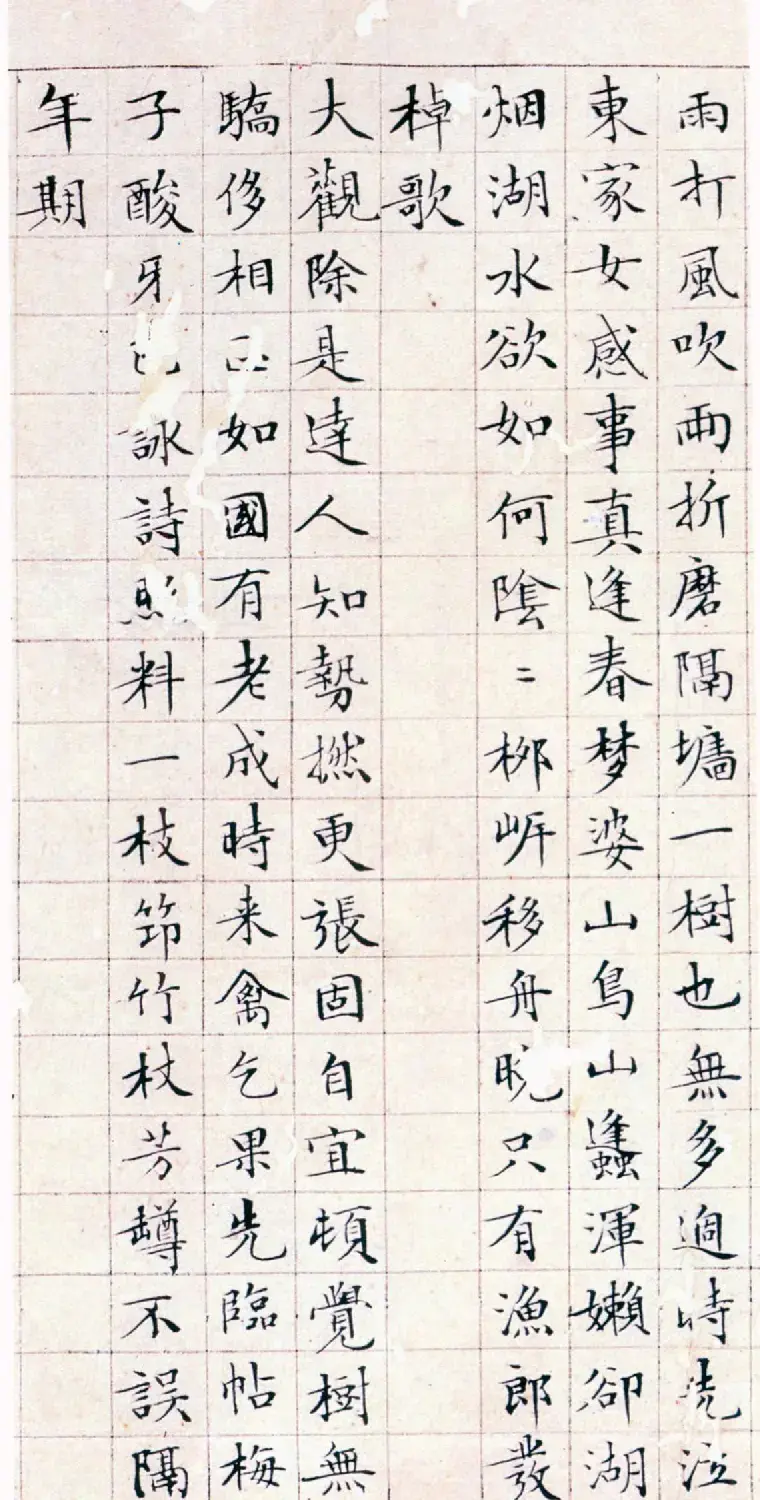 雨打風吹兩折磨隔墻一樹也無多過時泣
東家女感事真逢春梦婆山鳥山蠭渾嬾卻湖
烟湖水欲如何陰二柳岍移舟晚只有漁郎發
棹歌
大觀除是達人知勢撚更張固自宜頓覺樹無
驕侈相如國有老成時来禽乞果先臨帖梅
子酸牙詠詩料一枝筇竹杖芳罇不誤隔
年期